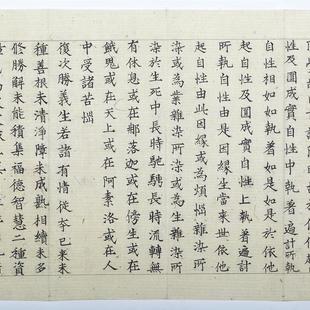 性及圓成實自性中執著遍計所執
自性相如如執著如是如是於依他
起自性及圓成實自性上執著遍計
所執自性由是因緣生當來世依他
起自性由此因緣或為煩惱雜染所
染或為業雜染所染或為生雜染所
染於生死中長時馳騁長時流轉無
有休息或在那落迦或在傍生或在
餓鬼或在天上或在阿素洛或在人
中受諸苦惱
復次勝義生若諸有情從本已來未
種善根未清淨障未成熟相續未多
修勝解未能積集福德智慧二種資